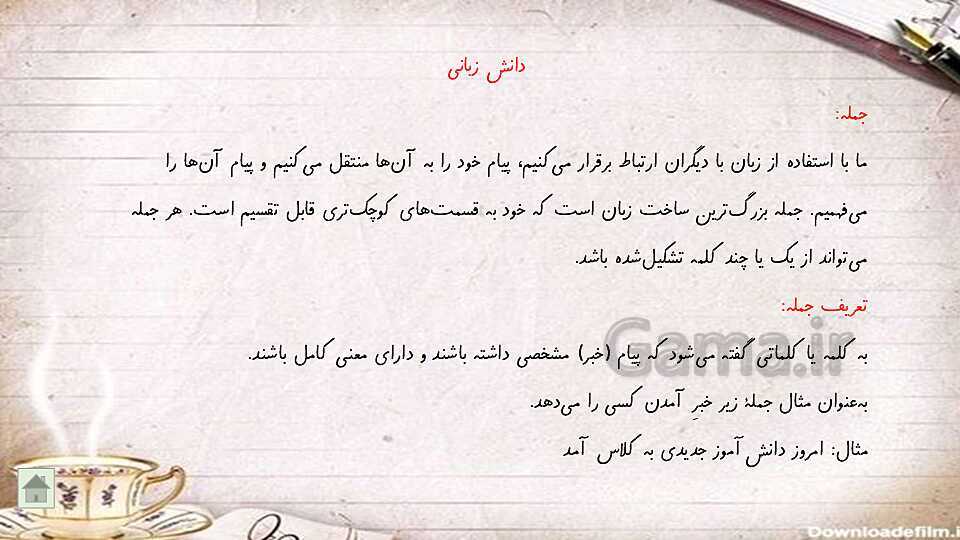 دانش زبانی
جمله:
ما با استفاده از زبان با دیگران ارتباط برقرار می‌کنیم، پیام خود را به آن‌ها منتقل می‌کنیم و پیام آن‌ها را
می‌فهمیم. جمله بزرگ‌ترین ساخت زبان است که خود به قسمت‌های کوچک‌تری قابل تقسیم است. هر جمله
می‌تواند از یک یا چند کلمه تشکیل‌شده باشد.
تعریف جمله:
به کلمه یا کلماتی گفته می‌شود که پیام (خبر) مشخصی داشته باشند و دارای معنی کامل باشند.
به‌عنوان مثال جملهٔ زیر خبرِ آمدن کسی را می‌دهد.
مثال: امروز دانش آموز جدیدی به کلاس آمد
Gama.ir
Downloadefilm.i